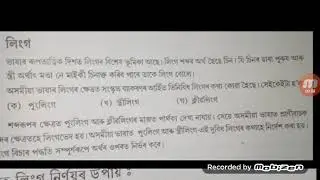 লিংগ
ভাষাৰ ৰূপতাত্ত্বিক দিশত লিংগৰ বিশেষ ভূমিকা আছে। লিংগ শব্দৰ অৰ্থ হৈছে চিন। যি চিনৰ দ্বাৰা পুৰুষ আৰু
স্ত্ৰী অৰ্থাৎ মতা নে মাইকী চিনাক্ত কৰিব পাৰে তাকে লিংগ বোলে।
অসমীয়া ভাষাত লিংগৰ ক্ষেত্ৰত সংস্কৃত ব্যাকৰণৰ আৰ্হিত তিনিবিধ লিংগৰ কথা কোৱা হৈছে। সেইকেইটা হ'ল
(ক) পুংলিংগ (খ) স্ত্ৰীলিংগ (গ) ক্লীৱলিংগ
শব্দৰূপৰ ক্ষেত্ৰত পুংলিংগ আৰু ক্লীৱলিংগৰ মাজত পাৰ্থক্য দেখা নাযায়। সেয়ে অসমীয়া ভাষাত প্ৰাণীবাচক
ক্ষেত্ৰতহে লিংগভেদ হয়। অসমীয়া ভাষাত পুংলিংগ আৰু স্ত্ৰীলিংগ এই দুবিধ লিংগৰ কথাহে নিৰ্দেশ কৰা হয়।
বিচাৰ পদ্ধতি সম্পূৰ্ণৰূপে অৰ্থৰ ওপৰত নিৰ্ভৰ কৰে।
লিংগ নিৰ্ণয়ৰ উপায় :
Recorded by Mobizen